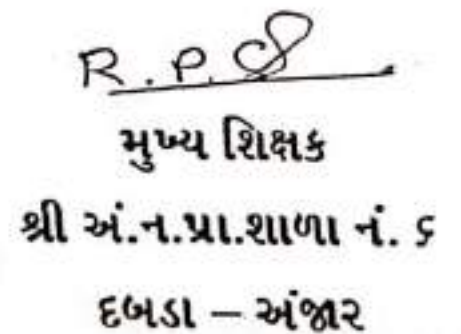 R.P.
મુખ્ય શિક્ષક
શ્રી અં.ન.પ્રા.શાળા નં. ૬
દબડા – અંજાર